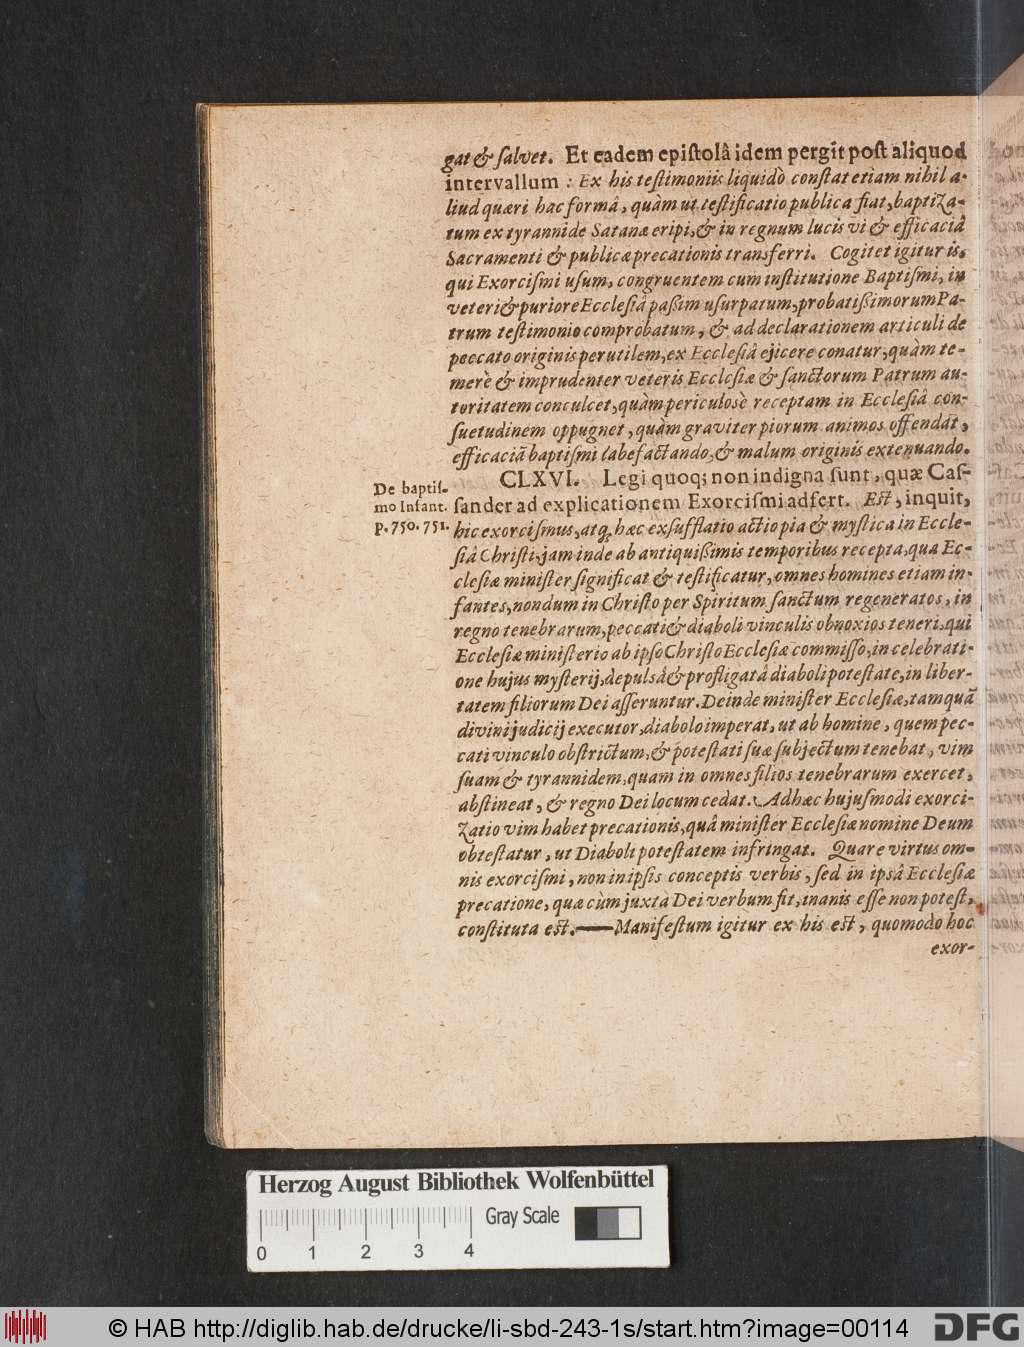 gat & ſalvet. Et eadem epiſtolâ idem pergit poſt aliquod
intervallum : Ex his teſtimoniis liquidò conſtat etiam nihil a-
liud quæri hac formâ, quàm ut teſtificatio publica fiat, baptiza-
tum ex tyrannide Satanæ eripi, & in regnum lucis vi & efficaciâ
Sacramenti & publicæ precationis transferri. Cogitet igitur is,
qui Exorciſmi uſum, congruentem cum inſtitutione Baptiſmi, in
veteri & puriore Eccleſiâ paßim uſurpatum, probatißimorum Pa-
trum teſtimonio comprobatum, & ad declarationem articuli de
peccato originis perutilem, ex Eccleſiâ ejicere conatur, quàm te-
merè & imprudenter veteris Eccleſiæ & ſanctorum Patrum au-
toritatem conculcet, quàm periculosè receptam in Eccleſiâ con-
ſuetudinem oppugnet, quàm graviter piorum animos offendat,
efficaciã baptiſmi labefactando, & malum originis extenuando.
CLXVI. Legi quoq; non indigna ſunt, quæ Caſ-
De baptiſ-
mo Infant.
p. 750. 751.
ſander ad explicationem Exorciſmi adfert. Eſt, inquit,
hic exorciſmus, atq; hæc exſufflatio actio pia & myſtica in Eccle-
ſiâ Chriſti, jam inde ab antiquißimis temporibus recepta, qua Ec-
cleſiæ miniſter ſignificat & teſtificatur, omnes homines etiam in-
fantes, nondum in Chriſto per Spiritum ſanctum regeneratos, in
regno tenebrarum, peccati & diaboli vinculis obnoxios teneri, qui
Eccleſiæ miniſterio ab ipſo Chriſto Eccleſiæ commiſſo, in celebrati-
one hujus myſterij, depulsâ & profligatâ diaboli poteſtate, in liber-
tatem filiorum Dei aſſeruntur. Deinde miniſter Eccleſiæ, tamquã
divini judicij executor, diabolo imperat, ut ab homine, quem pec-
cati vinculo obſtrictum, & poteſtati ſuæ ſubjectum tenebat, vim
ſuam & tyrannidem, quam in omnes filios tenebrarum exercet,
abſtineat, & regno Dei locum cedat. Adhæc hujuſmodi exorci-
zatio vim habet precationis, quâ miniſter Eccleſiæ nomine Deum
obteſtatur, ut Diaboli poteſtatem infringat. Quare virtus om-
nis exorciſmi, non in ipſis conceptis verbis, ſed in ipsâ Eccleſiæ
precatione, quæ cùm juxtà Dei verbum fit, inanis eſſe non poteſt,
conſtituta eſt.—— Manifeſtum igitur ex his eſt, quomodo hoc
exor-
Herzog August Bibliothek Wolfenbüttel
Gray Scale
0 1 2 3 4
© HAB http://diglib.hab.de/drucke/li-sbd-243-1s/start.htm?image=00114
DFG